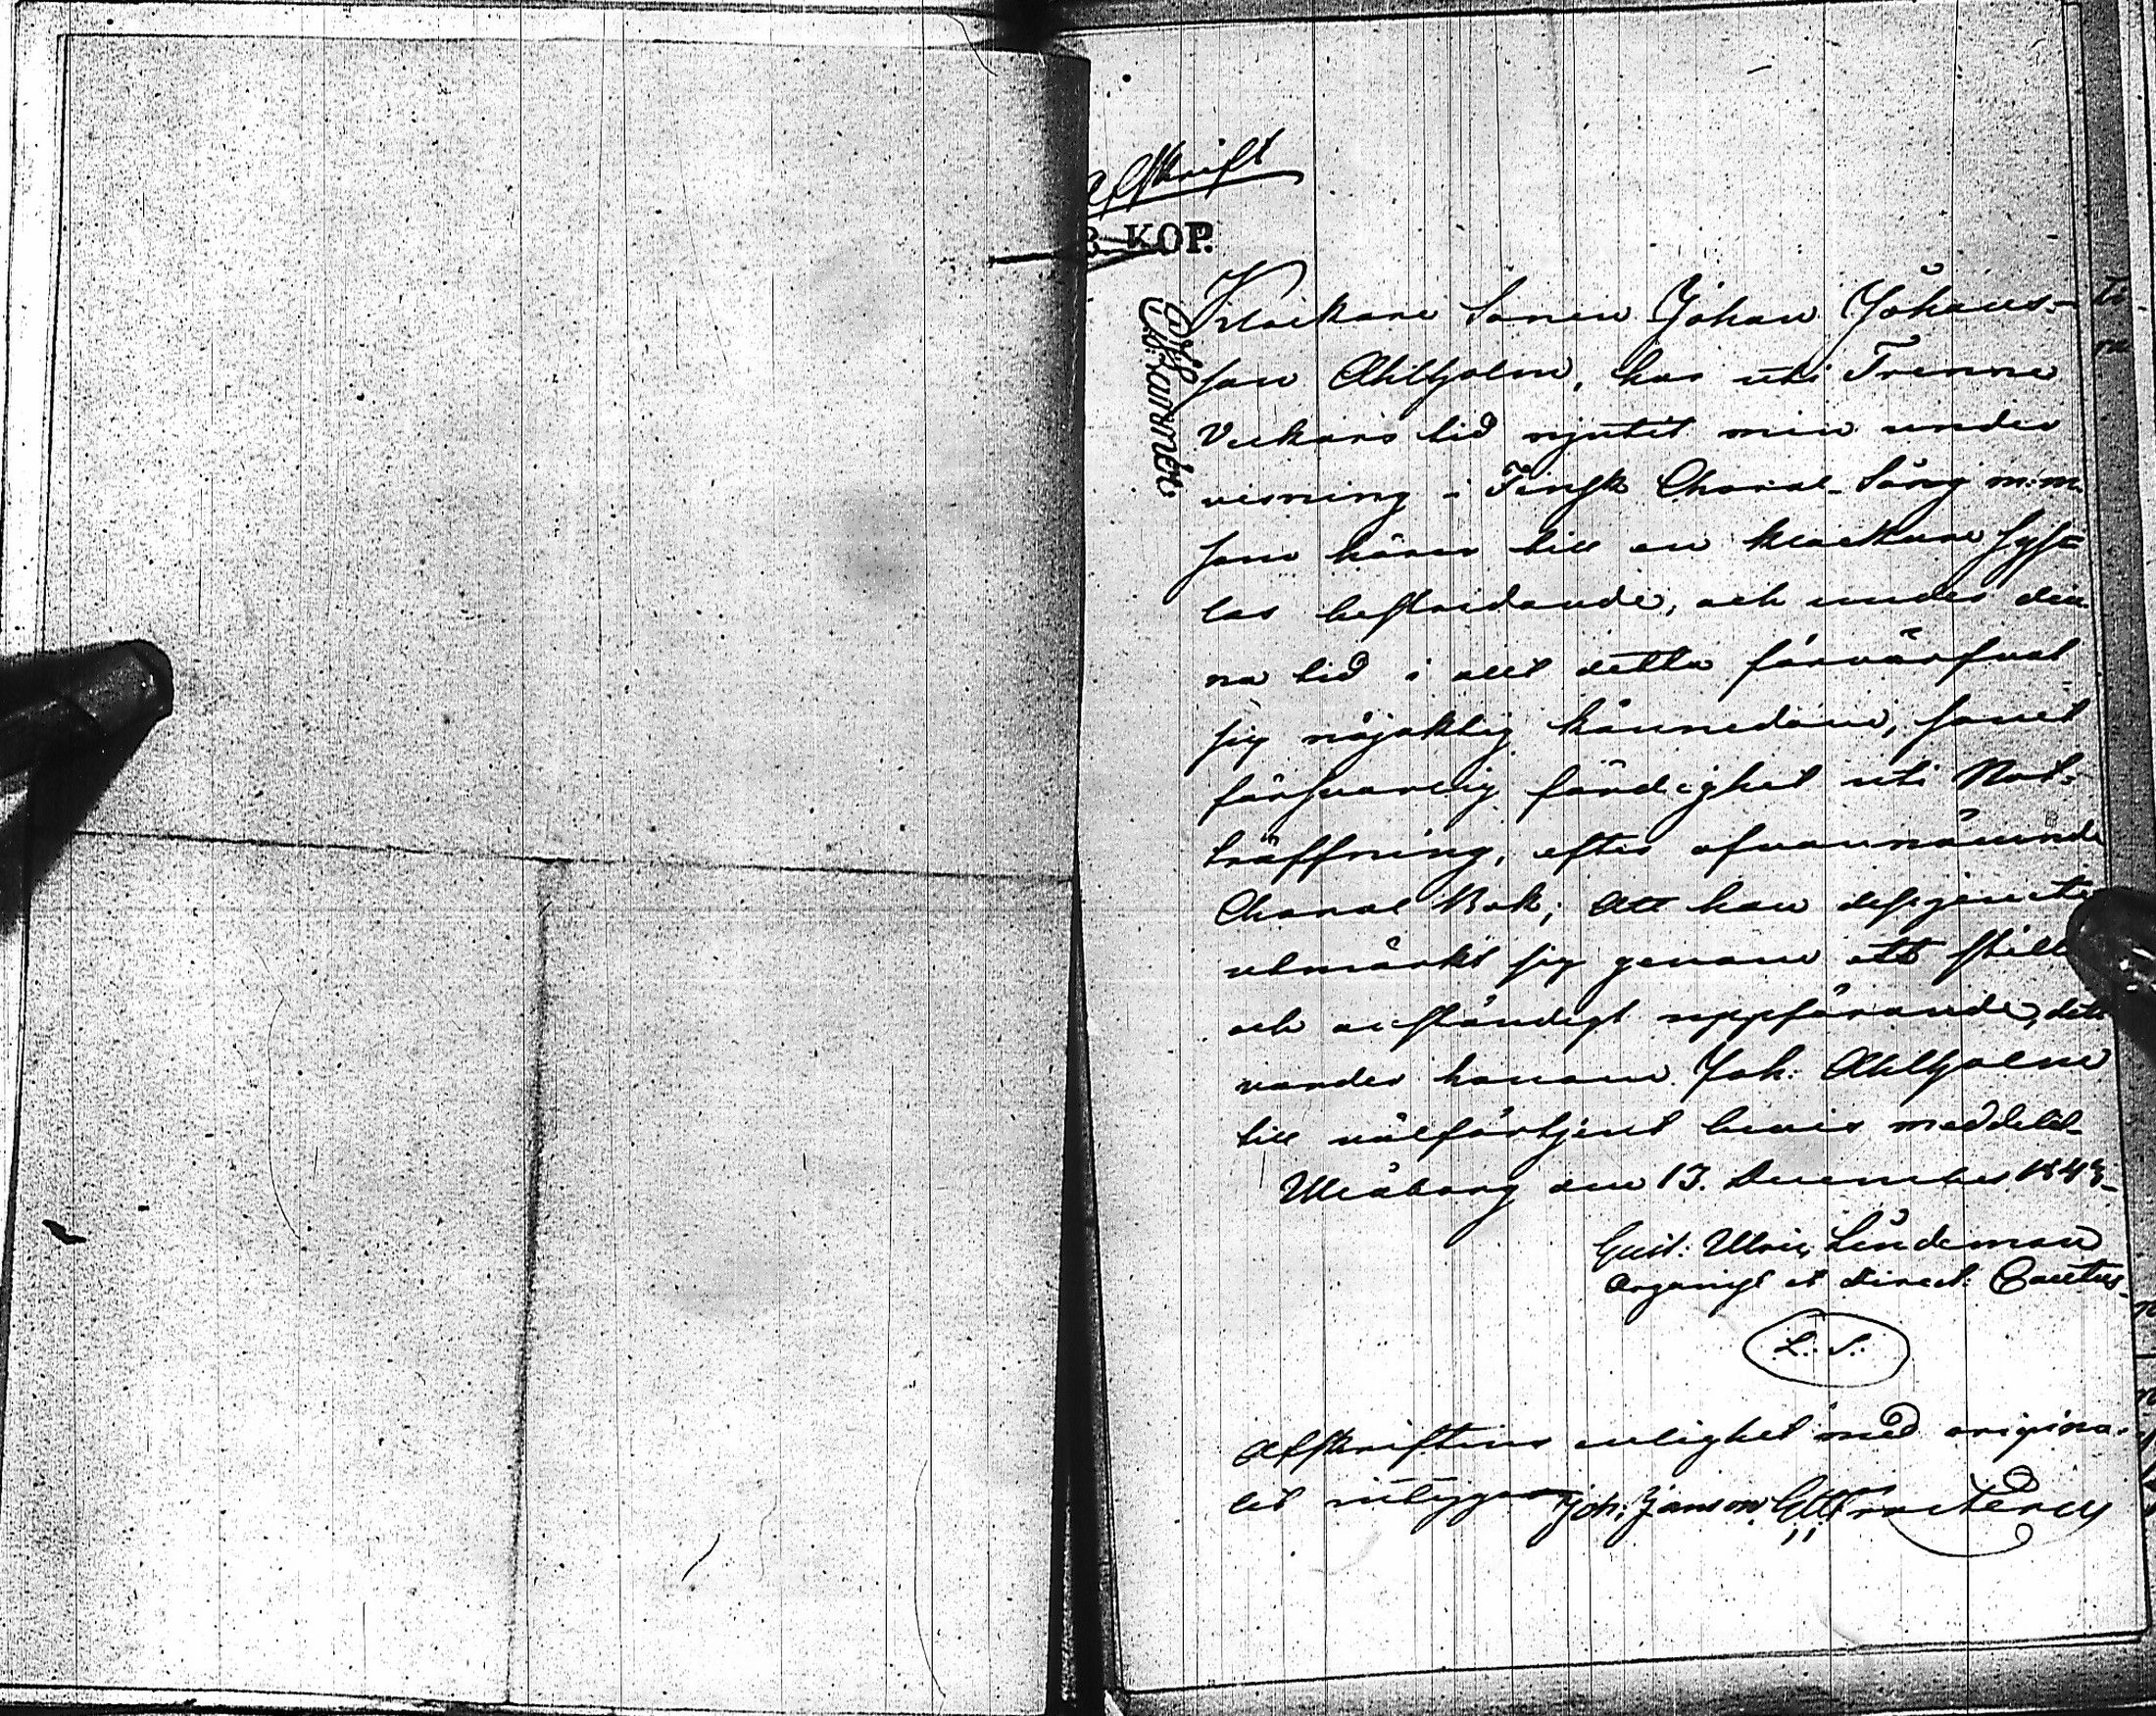 Afskrift
KOP.
Klockare Sonen Johan Johans-
son Ahlholm, har uti Trenne
Veckors tid njutit min under
visning i Finsk Choral-Sång m:m.
som hörer till en klockare syss-
las bestridande, och under den-
na tid i allt detta förvärfvat
sig nöjaktig kännedom, samt
försvarlig färdighet uti Not-
träffning, efter ofvannämnde
Choral Bok; Att han dessjemte
utmärkt sig genom ett stilla
och anständigt uppförande, det
varder honom Joh: Ahlholm
till välförtjent bevis meddelt.
Uleåborg den 13. December 1843.
Gust: Ulric Lindeman
Organist et Direct: Cantus.
L. S.
Afskriftens enlighet med origina-
let intygar Joh: Janson